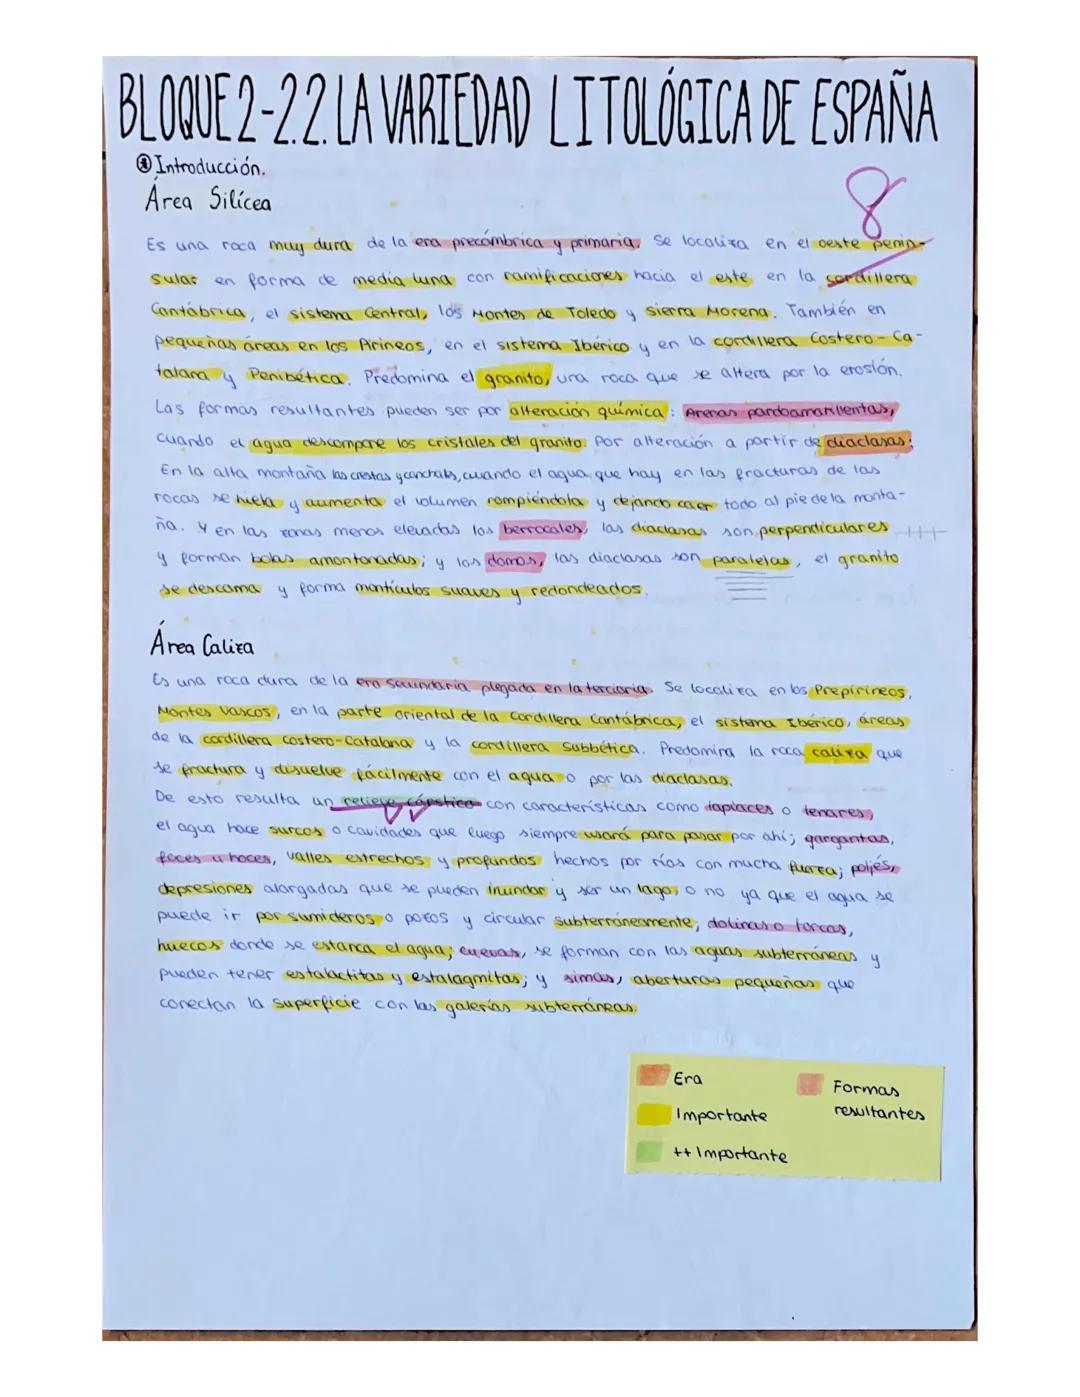 BLOQUE 2-2.2. LA VARIEDAD LITOLÓGICA DE ESPAÑA
Introducción.
Área Silícea
8
Es una roca muy dura de la era precámbrica y primaria. Se localiza en el oeste penin-
sular en forma de media luna con ramificaciones hacia el este en la cordillera
Cantábrica, el sistema Central, los Montes de Toledo y Sierra Morena. También en
pequeñas áreas en los Pirineos, en el sistema Ibérico y en la cordillera Costero-Ca-
talana y Penibética. Predomina el granito, una roca que se altera por la erosión.
Las formas resultantes pueden ser por alteración química: Arenas pardoamarillentas,
cuando el agua descompone los cristales del granito. Por alteración a partir de diaclasas:
En la alta montaña las crestas y canchales, cuando el agua que hay en las fracturas de las
rocas se hiela y aumenta el volumen rompiéndola y dejando caer todo al pie de la monta-
ña. Y en las zonas menos elevadas los berrocales, las diaclasas son perpendiculares
y forman bolas amontonadas; y los domos, las diaclasas son paralelas, el granito
se descama y forma montículos suaves y redondeados.
Área Caliza
Es una roca dura de la era secundaria plegada en la terciaria. Se localiza en los Prepirineos,
Montes Vascos, en la parte oriental de la Cordillera Cantábrica, el sistema Ibérico, áreas
de la cordillera Costero-Catalana y la cordillera Subbética. Predomina la roca caliza que
se fractura y disuelve fácilmente con el agua o por las diaclasas.
De esto resulta un relieve cárstico con características como lapiaces o lenares,
el agua hace surcos o cavidades que luego siempre usará para pasar por ahí; gargantas,
foces u hoces, valles estrechos y profundos hechos por ríos con mucha fuerza; poljés,
depresiones alargadas que se pueden inundar y ser un lago, o no ya que el agua se
puede ir por sumideros o pozos y circular subterráneamente; dolinas o torcas,
huecos donde se estanca el agua; cuevas, se forman con las aguas subterráneas y
pueden tener estalactitas y estalagmitas; y simas, aberturas pequeñas que
conectan la superficie con las galerías subterráneas.
Era
Importante
++ Importante
Formas
resultantes